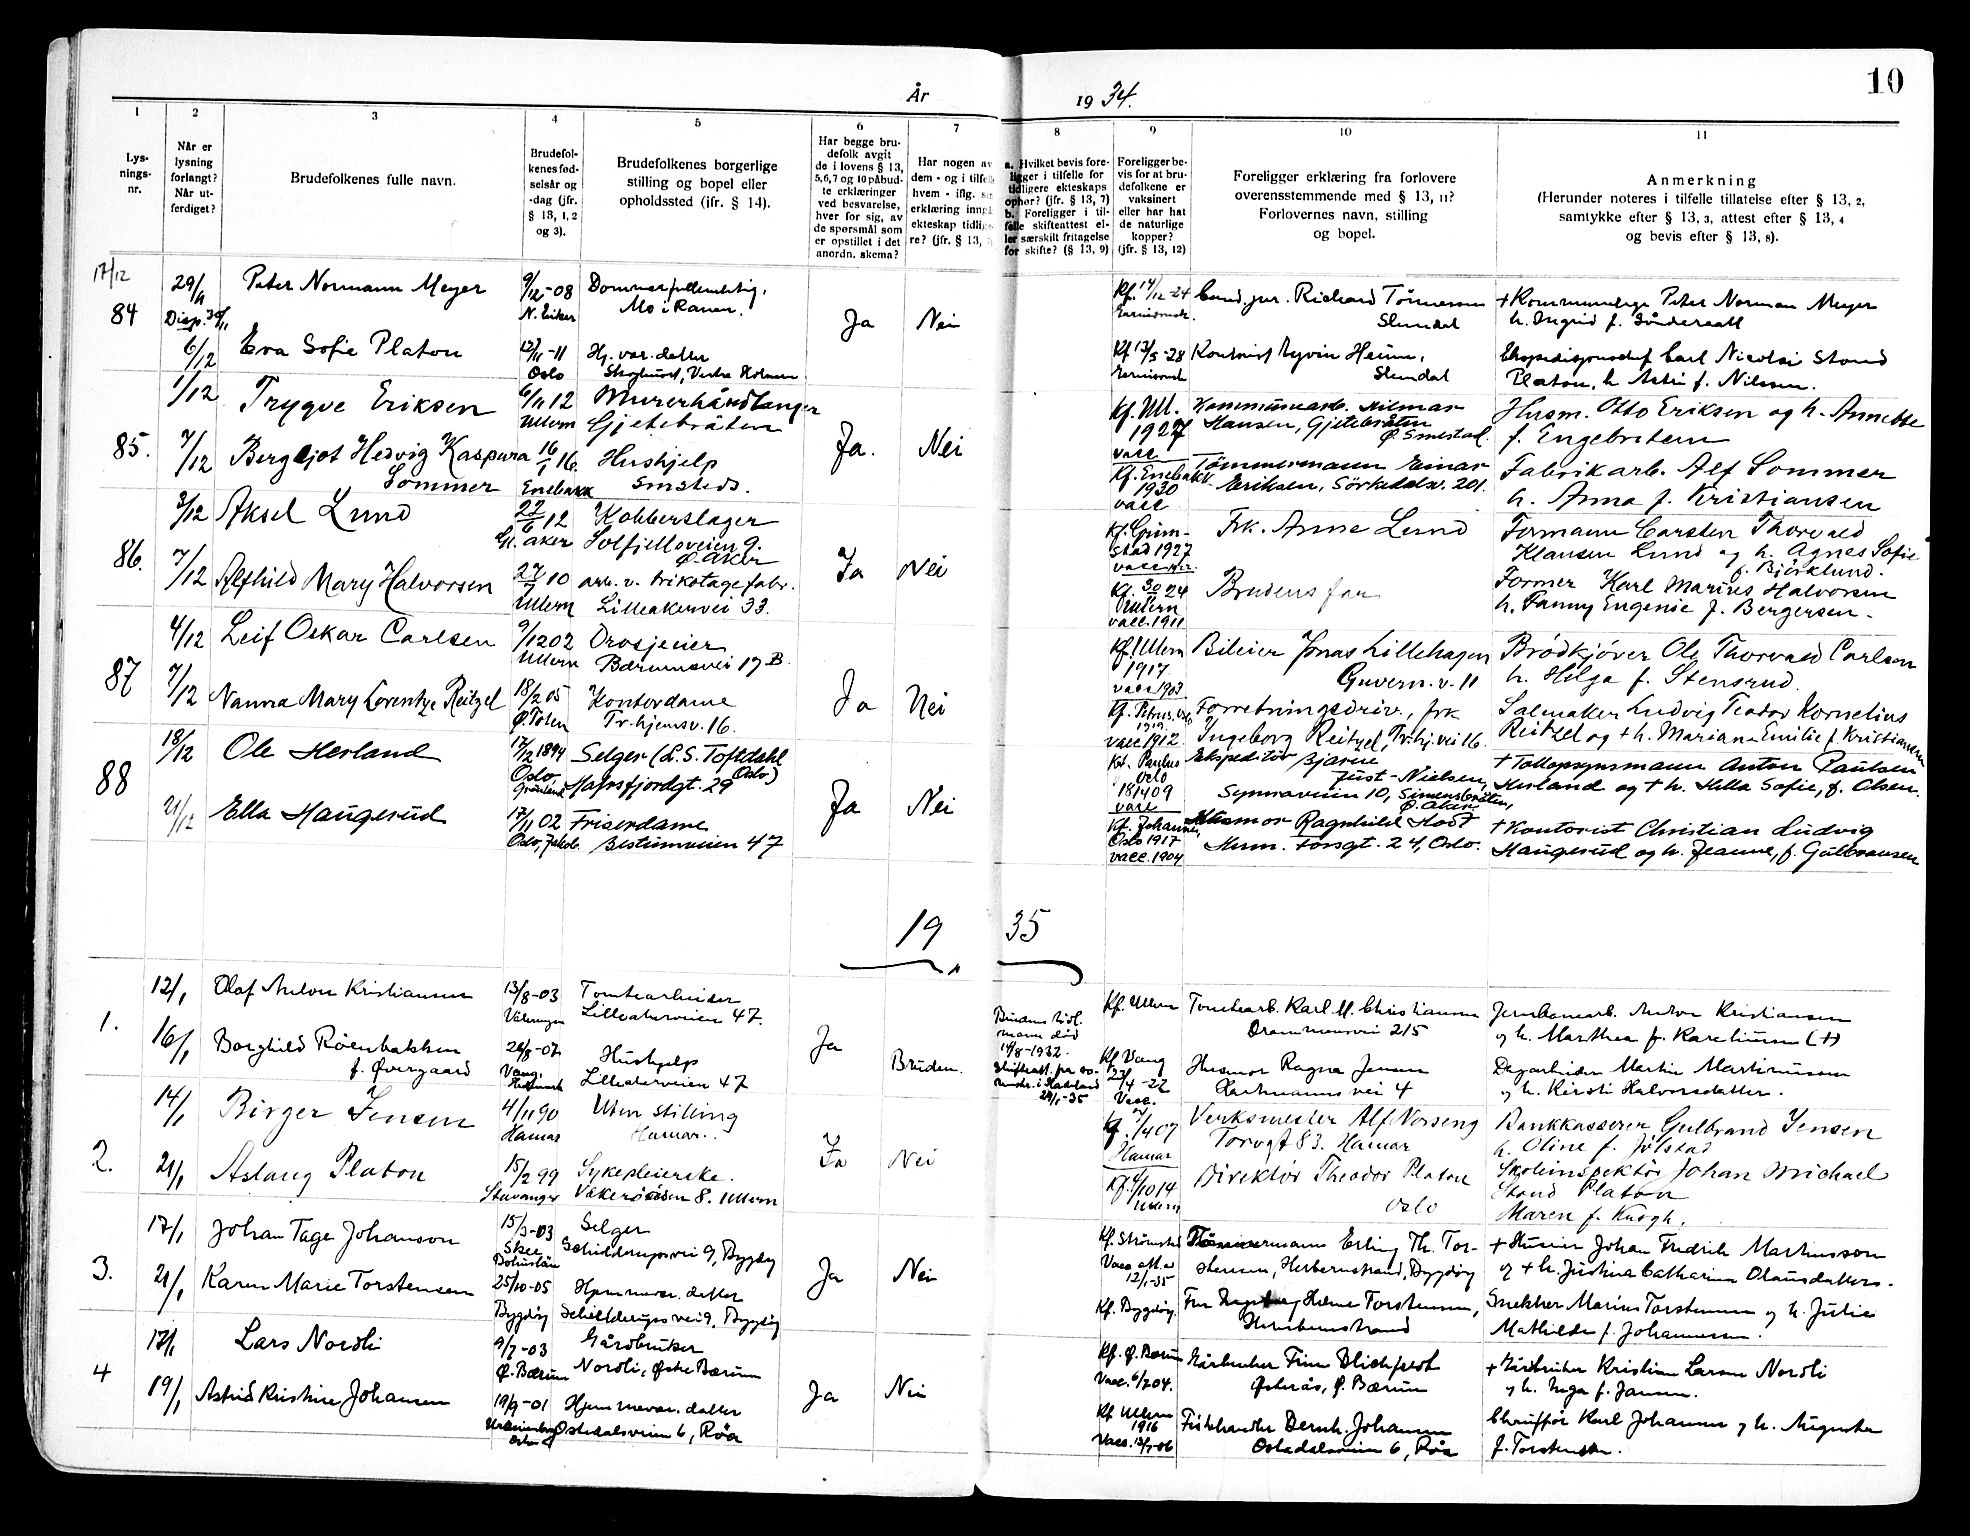 10
År 1934.
1 2 3 4 5 6 7 8 9 10 11
Lys-
nings-
nr.
Når er
lysning
forlangt?
Når ut-
ferdiget?
Brudefolkenes fulle navn.
Brudefol-
kenes fød-
selsår og
-dag (jfr.
§ 13, 1, 2
og 3).
Brudefolkenes borgerlige
stilling og bopel eller
opholdssted (jfr. § 14).
Har begge bru-
defolk avgit
de i lovens § 13,
5,6,7 og 10 påbud-
te erklæringer
ved besvarelse,
hver for sig, av
de spørsmål som
er opstillet i det
anordn. skema?
Har nogen av
dem - og i tilfelle
hvem - iflg. sin
erklæring inngått
ekteskap tidlige-
re? (jfr. § 13,
a. Hvilket bevis fore-
ligger i tilfelle for
tidligere ekteskaps
ophør? (jfr. § 13, 7)
b. Foreligger i til-
felle skifteattest el-
ler særskilt fritagelse
for skifte? (§ 13, 9)
Foreligger be-
vis for at bru-
defolkene er
vaksinert
eller har hat
de naturlige
kopper?
(jfr. § 13, 12)
Foreligger erklæring fra forlovere
overensstemmende med § 13, 11?
Forlovernes navn, stilling
og bopel.
Anmerkning
(Herunder noteres i tilfelle tillatelse efter § 13, 2,
samtykke efter § 13, 3, attest efter § 13, 4
og bevis efter § 13, 8).
17/12
84
29/11
6/12
Peter Normann Meyer
9/12-08
N. Eiker
Dommerfullmektig,
Mo i Ranen.
Ja Nei
Kf. 14/12-24
Cand. jur. Richard Tønnesen
Slemdal
+ Kommunelæge Peter Norman Meyer
h. Ingrid f. Sønderaall
Eva Sofie Platou
Oslo
Hj. vær. datter
Kf 13/5-28
Kontorist Eyvin Heum,
Slemdal
Ekspedisjonschef Carl Nicolai Stoud
Platou, h. Astri f. Nilssen.
85.
1/12
7/12
Trygve Eriksen
6/11 12
Ullern
Murerhåndlanger
Gjetebråten
Ja. Nei
Kf. Ull.
1927
vacc
Kommunearb. Hilmar
Hansen, Gjetebråten
Ø. Smestad.
Husm. Otto Eriksen og h. Annette
f. Engebretsen
Bergljot Hedvig Kaspara
Sommer
16/1 16.
Enebakk
Hushjelp
smsteds.
Kf. Enebakk
1930
vacc
Tømmermann Einar
Eriksen, Sørkedalsv. 201.
Fabrikarb. Alf Sommer
h. Anna f. Kristiansen
86.
3/12
7/12
Aksel Lund
22/6 12
Gl. Aker
Kobberslager
Solfjellveien 9.
Ø. Aker
Ja Nei
Kf. Grim-
stad 1927
Frk. Anne Lund
Formann Carsten Thorvald
Klausen Lund og h. Agnes Sofie
f. Bjørklund.
Alfhild Mary Halvorsen
27/7 10
Ullern
arb. v. trikotagefabr.
Lilleakervei 33.
vacc. 1911
Brudens far
Former Karl Marius Halvorsen
h. Fanny Eugenie f. Bergersen.
87
4/12
7/12
Leif Oskar Carlsen
9/12 02
Ullern
Drosjeeier
Bærumsvei 17 B.
Ja Nei
Kf. Ullern
1917
vacc 1903
Bileier Jonas Lillehagen
Guvern. v. 11
Brødkjører Ole Thorvald Carlsen
h. Helga f. Stensrud.
Nanna Mary Lorentze Reitzel
18/2 05
Ø. Toten
Kontordame
Tr.hjemsv. 16.
Kf. Petrus, Oslo
1919
vacc 1912
Forretningsdriv., frk
Ingeborg Reitzel, Tr.hj.vei 16.
Salmaker Ludvig Teodor Kornelius
Reitzel og + h. Mariane Emilie f. Kristiansen
88
18/12
21/12
Ole Hesland
17/12 1894
Oslo,
Grønland
Selger (L.S. Toftdahl
Oslo)
Hafrsfjordgt. 29
Ja Nei
Kf. Paulus
Oslo
18/4 09
vacc
Ekspeditør Bjarne
Just-Nielsen,
Synnaveien 10, Simensbråten,
Ø. Aker
+ Tollopsynsmann Anton Paulsen
Hesland og + h. Hilla Sofie, f. Olsen.
Ella Haugerud
17/11 02
Oslo, Jakob.
Friserdame
Bestumveien 47
Kf. Johannes,
Oslo 1917
vacc. 1904
Husmor Ragnhild Hodt
Kom. Forsgt. 24, Oslo.
+ Kontorist Christian Ludvig
Haugerud og h. Jeanne, f. Gulbransen
1935
1.
12/1
16/1
Olaf Anton Kristiansen
13/8-03
Vålerengen
Tomtearbeider
Lilleakerveien 47.
Ja Bruden.
Kf. Ullern
Tomtearb. Karl M. Christiansen
Drammensvei 215
Jernbanearb. Anton Kristiansen
og h. Marthea f. Kareliussen (+)
Borghild Røenbakken
f. Øvergaard
26/8-07
Vang,
Hedmark
Hushjelp
Lilleakerveien 47
Brudens tidl.
mann død
14/8-1932.
24/1-35
Kf Vang
Vacc.
Husmor Ragna Jensen
vei 4
Dagarbeider Martin Martinussen
og h. Kirsti Halvorsdatter.
2.
14/1
21/1
Birger Jensen
4/11 90
Hamar
Uten stilling
Hamar.
Ja Nei
Hamar
Verksmester Alf Norseng
Torvgt 83. Hamar
Bankkasserer Gulbrand Jensen
h. Oline f. Jølstad
Aslaug Platou
15/2 99
Stavanger
Sykepleierske.
Vækerøveien 8. Ullern
Kf. 4/10 14
Ullern
Direktør Theodor Platou
Oslo
Skoleinspektør Johan Michael
Stoud Platou
Maren f. Krogh.
3.
17/1
21/1
Johan Tage Johanson
15/3-03
Skee
Bohuslän
Selger
Schiølderupsvei 9, Bygdøy
Ja Nei
Kf. Strömstad
Vacc.att. av
12/1-35
Tømmermann Erling Th. Tor-
stensen, Herbernstrand, Bygdøy
+ Huseier Johan Fredrik Martinsson
og + h. Justina Catharina Olausdatters.
Karen Marie Torstensen
25/10-05
Bygdøy
Hjemmevær. datter
Schiølderupsvei 9, Bygdøy
Kf. Bygdøy.
Fru Helene Torstensen,
Snekker Marius Torstensen og h. Julie
Mathilde f. Johannessen.
4
17/1
19/1
Lars Nordli
9/7-03
Ø. Bærum
Gårdbruker
Nordli, Østre Bærum
Ja Nei
Kf. Ø. Bærum
Vacc. 6/2 04.
Gårdbruker Finn Blichfeldt
Østerås, Ø. Bærum
+ Gårdbruker Kristian Larsen Nordli
og h. Inga f. Jansen.
Astrid Kristine Johansen
19/9-01
Uranienborg
Oslo
Hjemmevær. datter
Ostadalsveien 6, Røa
Kf Ullern
1916
Vacc. 13/7-06
Fiskehandler Bernh. Johansen
Ostadalsveien 6, Røa
Chauffør Karl Johansen og h. Augusta
f. Torstensen.